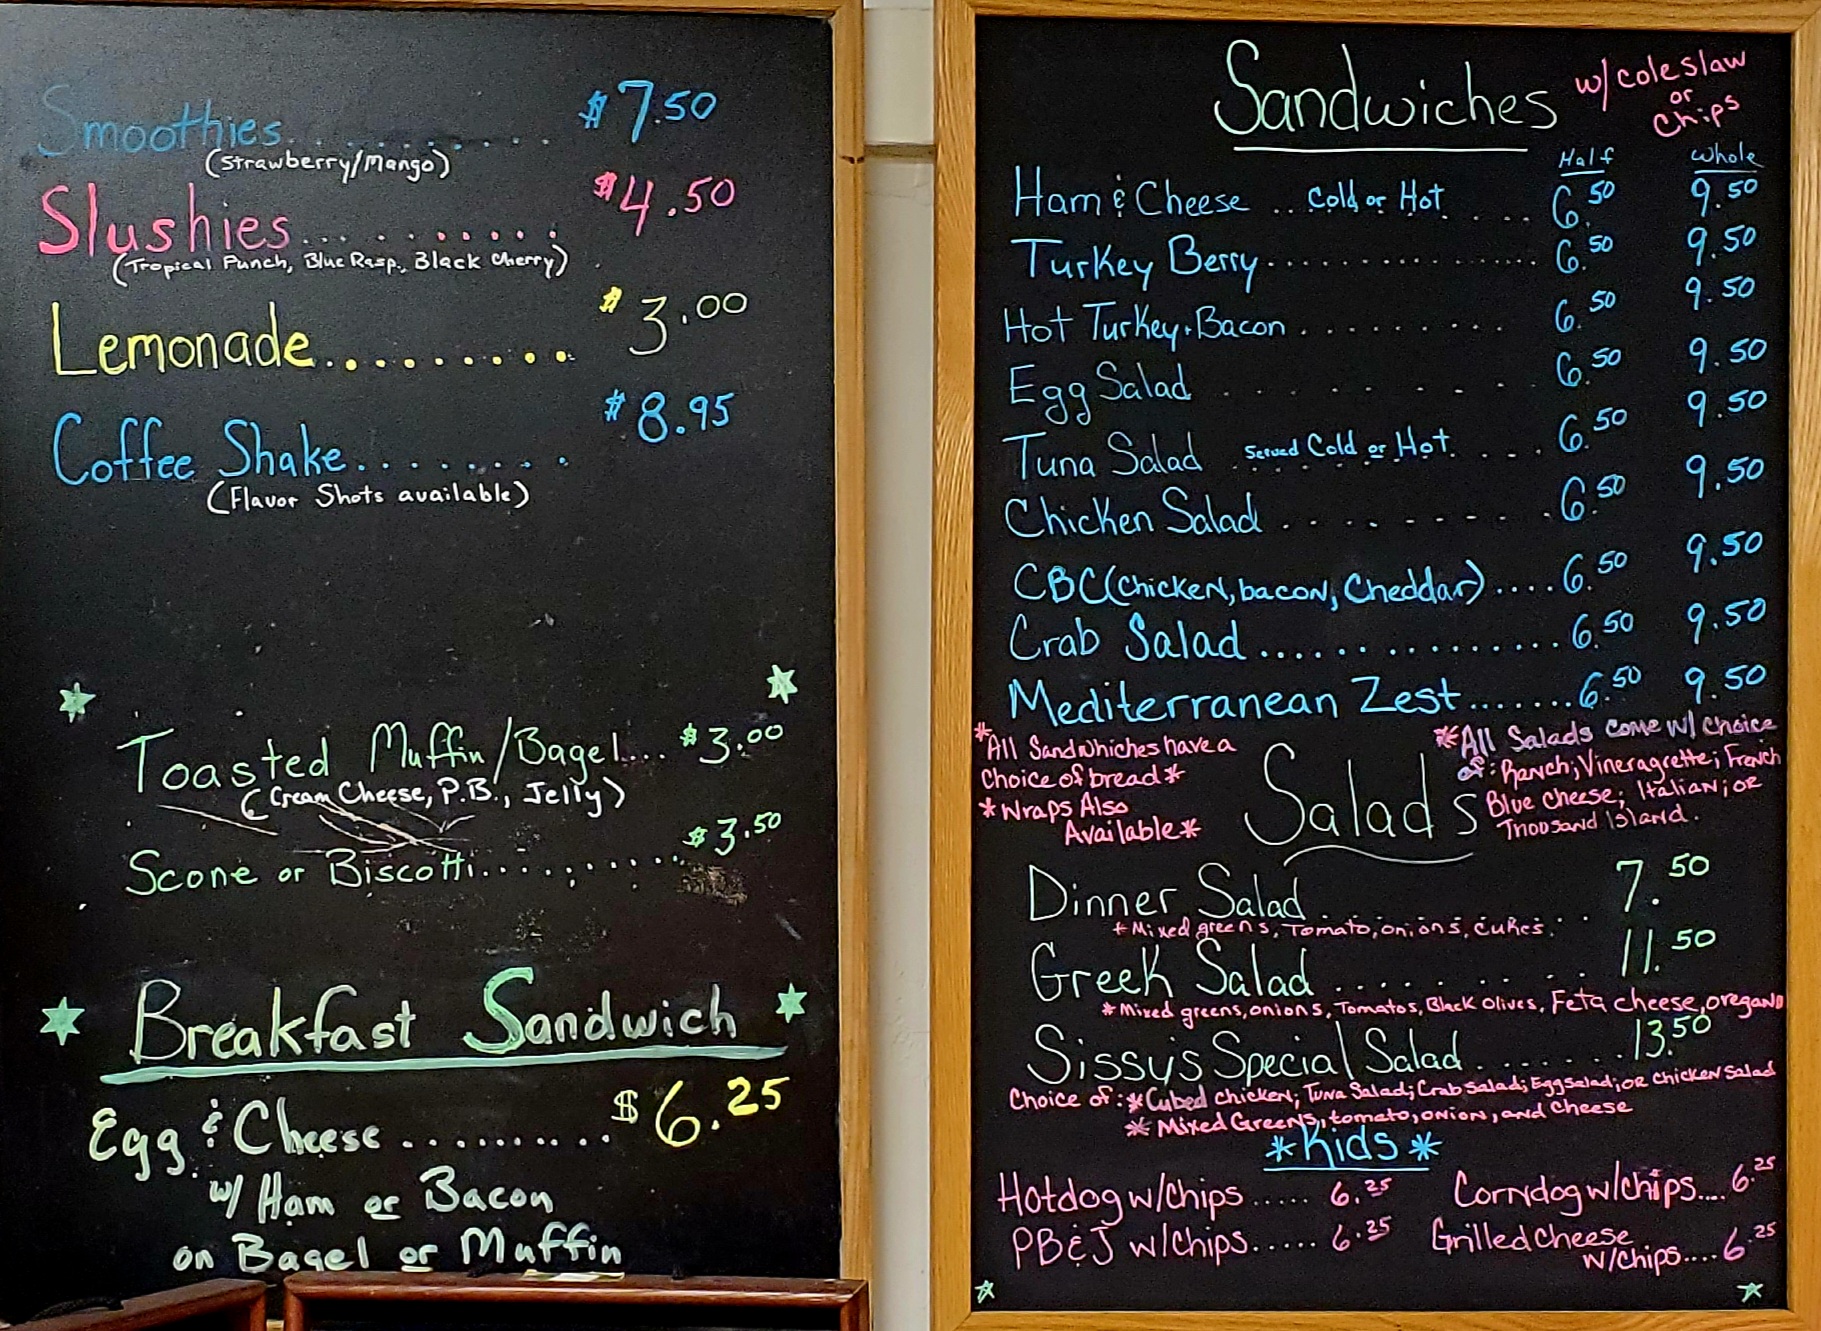 Smoothies.......... $7.50
(Strawberry/Mango)
Slushies.......... $4.50
(Tropical Punch, Blue Rasp., Black Cherry)
Lemonade......... $3.00
Coffee Shake........ $8.95
(Flavor Shots available)
Toasted Muffin/Bagel... $3.00
(Cream Cheese, P.B., Jelly)
Scone or Biscotti.......... $3.50
Breakfast Sandwich
Egg & Cheese........... $6.25
w/ Ham or Bacon
on Bagel or Muffin
Sandwiches w/ coleslaw
or
Chips
Half Whole
Ham & Cheese .. Cold or Hot .... 6.50 9.50
Turkey Berry............... 6.50 9.50
Hot Turkey + Bacon.......... 6.50 9.50
Egg Salad ........ 6.50 9.50
Tuna Salad Served Cold or Hot .... 6.50 9.50
Chicken Salad.......... 6.50 9.50
CBC (Chicken, bacon, Cheddar).... 6.50 9.50
Crab Salad............... 6.50 9.50
Mediterranean Zest....... 6.50 9.50
*All Sandwhiches have a
Choice of bread*
*Wraps Also
Available*
Salads
*All Salads come w/ choice
of: Ranch; Vineragrette; French
Blue cheese; Italian; or
Thousand Island.
Dinner Salad.......... 7.50
*Mixed greens, Tomato, onions, cukes.
Greek Salad.......... 11.50
*Mixed greens, onions, Tomatos, Black olives, Feta cheese, oregano
Sissy's Special Salad........ 13.50
Choice of: *Cubed chicken; Tuna Salad; Crab salad; Egg salad; or chicken salad
* Mixed Greens, tomato, onion, and cheese
*Kids*
Hotdog w/chips..... 6.25 Corndog w/chips.... 6.25
PB&J w/chips..... 6.25 Grilled Cheese
w/chips.... 6.25